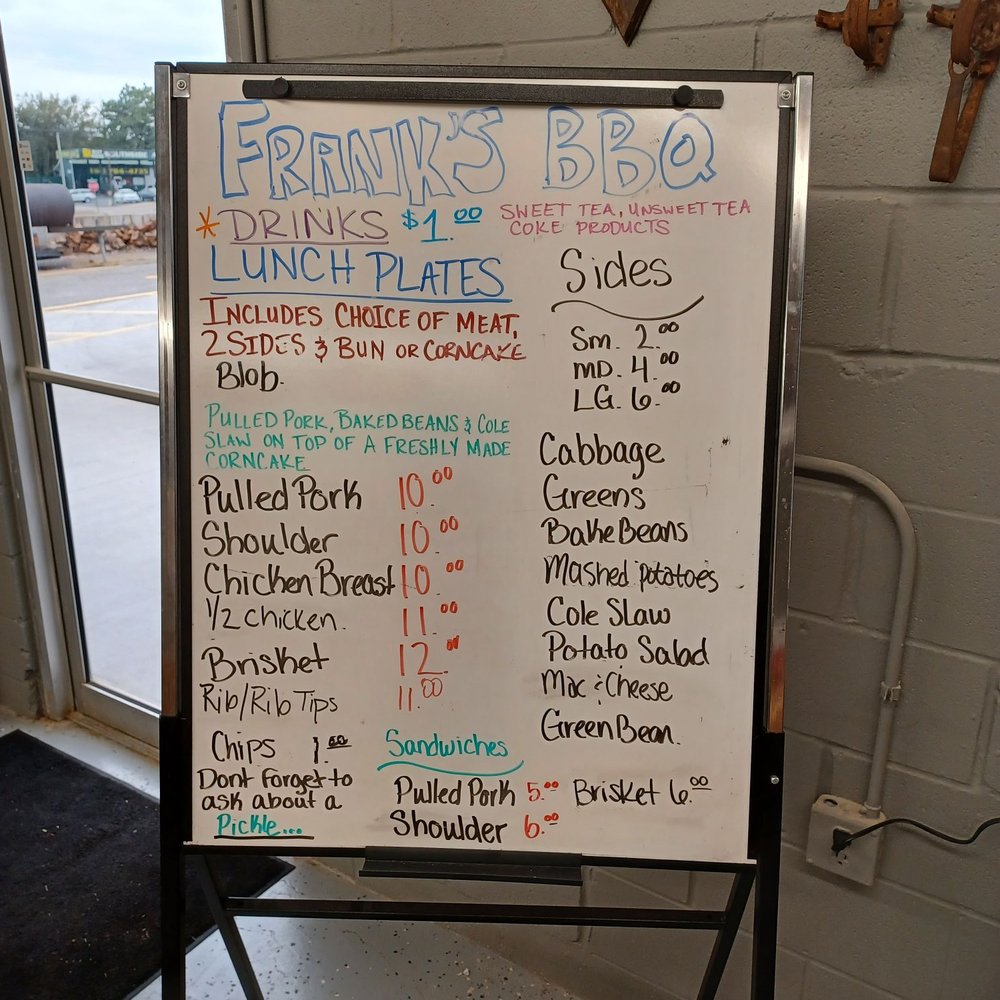 FRANK'S BBQ
* DRINKS $1.00 SWEET TEA, UNSWEET TEA
COKE PRODUCTS
LUNCH PLATES
INCLUDES CHOICE OF MEAT,
2 SIDES & BUN OR CORNCAKE
Blob.
PULLED PORK, BAKED BEANS & COLE
SLAW ON TOP OF A FRESHLY MADE
CORNCAKE
Pulled Pork 10.00
Shoulder 10.00
Chicken Breast 10.00
1/2 Chicken. 11.00
Brisket 12.00
Rib/Rib Tips 11.00
Chips 1.00
Dont forget to
ask about a
Pickle...
Sides
Sm. 2.00
MD. 4.00
LG. 6.00
Cabbage
Greens
Bake Beans
Mashed Potatoes
Cole Slaw
Potato Salad
Mac & Cheese
Green Bean.
Sandwiches
Pulled Pork 5.00 Brisket 6.00
Shoulder 6.00